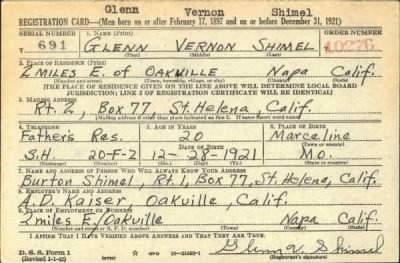 Glenn Vernon Shimel
REGISTRATION CARD—(Men born on or after February 17, 1897 and on or before December 31, 1921)
SERIAL NUMBER 1. NAME (Print) ORDER NUMBER
T 691 GLENN VERNON SHIMEL 10276
(First) (Middle) (Last)
2. PLACE OF RESIDENCE (Print)
2 MILES E. OF OAKVILLE Napa Calif.
(Number and street) (Town, township, village, or city) (County) (State)
[THE PLACE OF RESIDENCE GIVEN ON THE LINE ABOVE WILL DETERMINE LOCAL BOARD
JURISDICTION; LINE 2 OF REGISTRATION CERTIFICATE WILL BE IDENTICAL]
3. MAILING ADDRESS
Rt. 2, Box 77, St. Helena, Calif.
[Mailing address if other than place indicated on line 2. If same insert word same]
4. TELEPHONE 5. AGE IN YEARS 6. PLACE OF BIRTH
Fathers Res. 20 Marceline
DATE OF BIRTH
S.H. 20-F-2 12-28-1921 Mo.
(Exchange) (Number) (Mo.) (Day) (Yr.) (State or country)
7. NAME AND ADDRESS OF PERSON WHO WILL ALWAYS KNOW YOUR ADDRESS
Burton Shimel, Rt. 1, Box 77, St. Helena, Calif.
8. EMPLOYER'S NAME AND ADDRESS
A.D. Kaiser, Oakville, Calif.
9. PLACE OF EMPLOYMENT OR BUSINESS
2 miles E./Oakville Napa Calif
(Number and street or R. F. D. number) (Town) (County) (State)
I AFFIRM THAT I HAVE VERIFIED ABOVE ANSWERS AND THAT THEY ARE TRUE.
D. S. S. Form 1 GPO 16—21630-1 Glenn V. Shimel
(Revised 1-1-42) (over) (Registrant's signature)